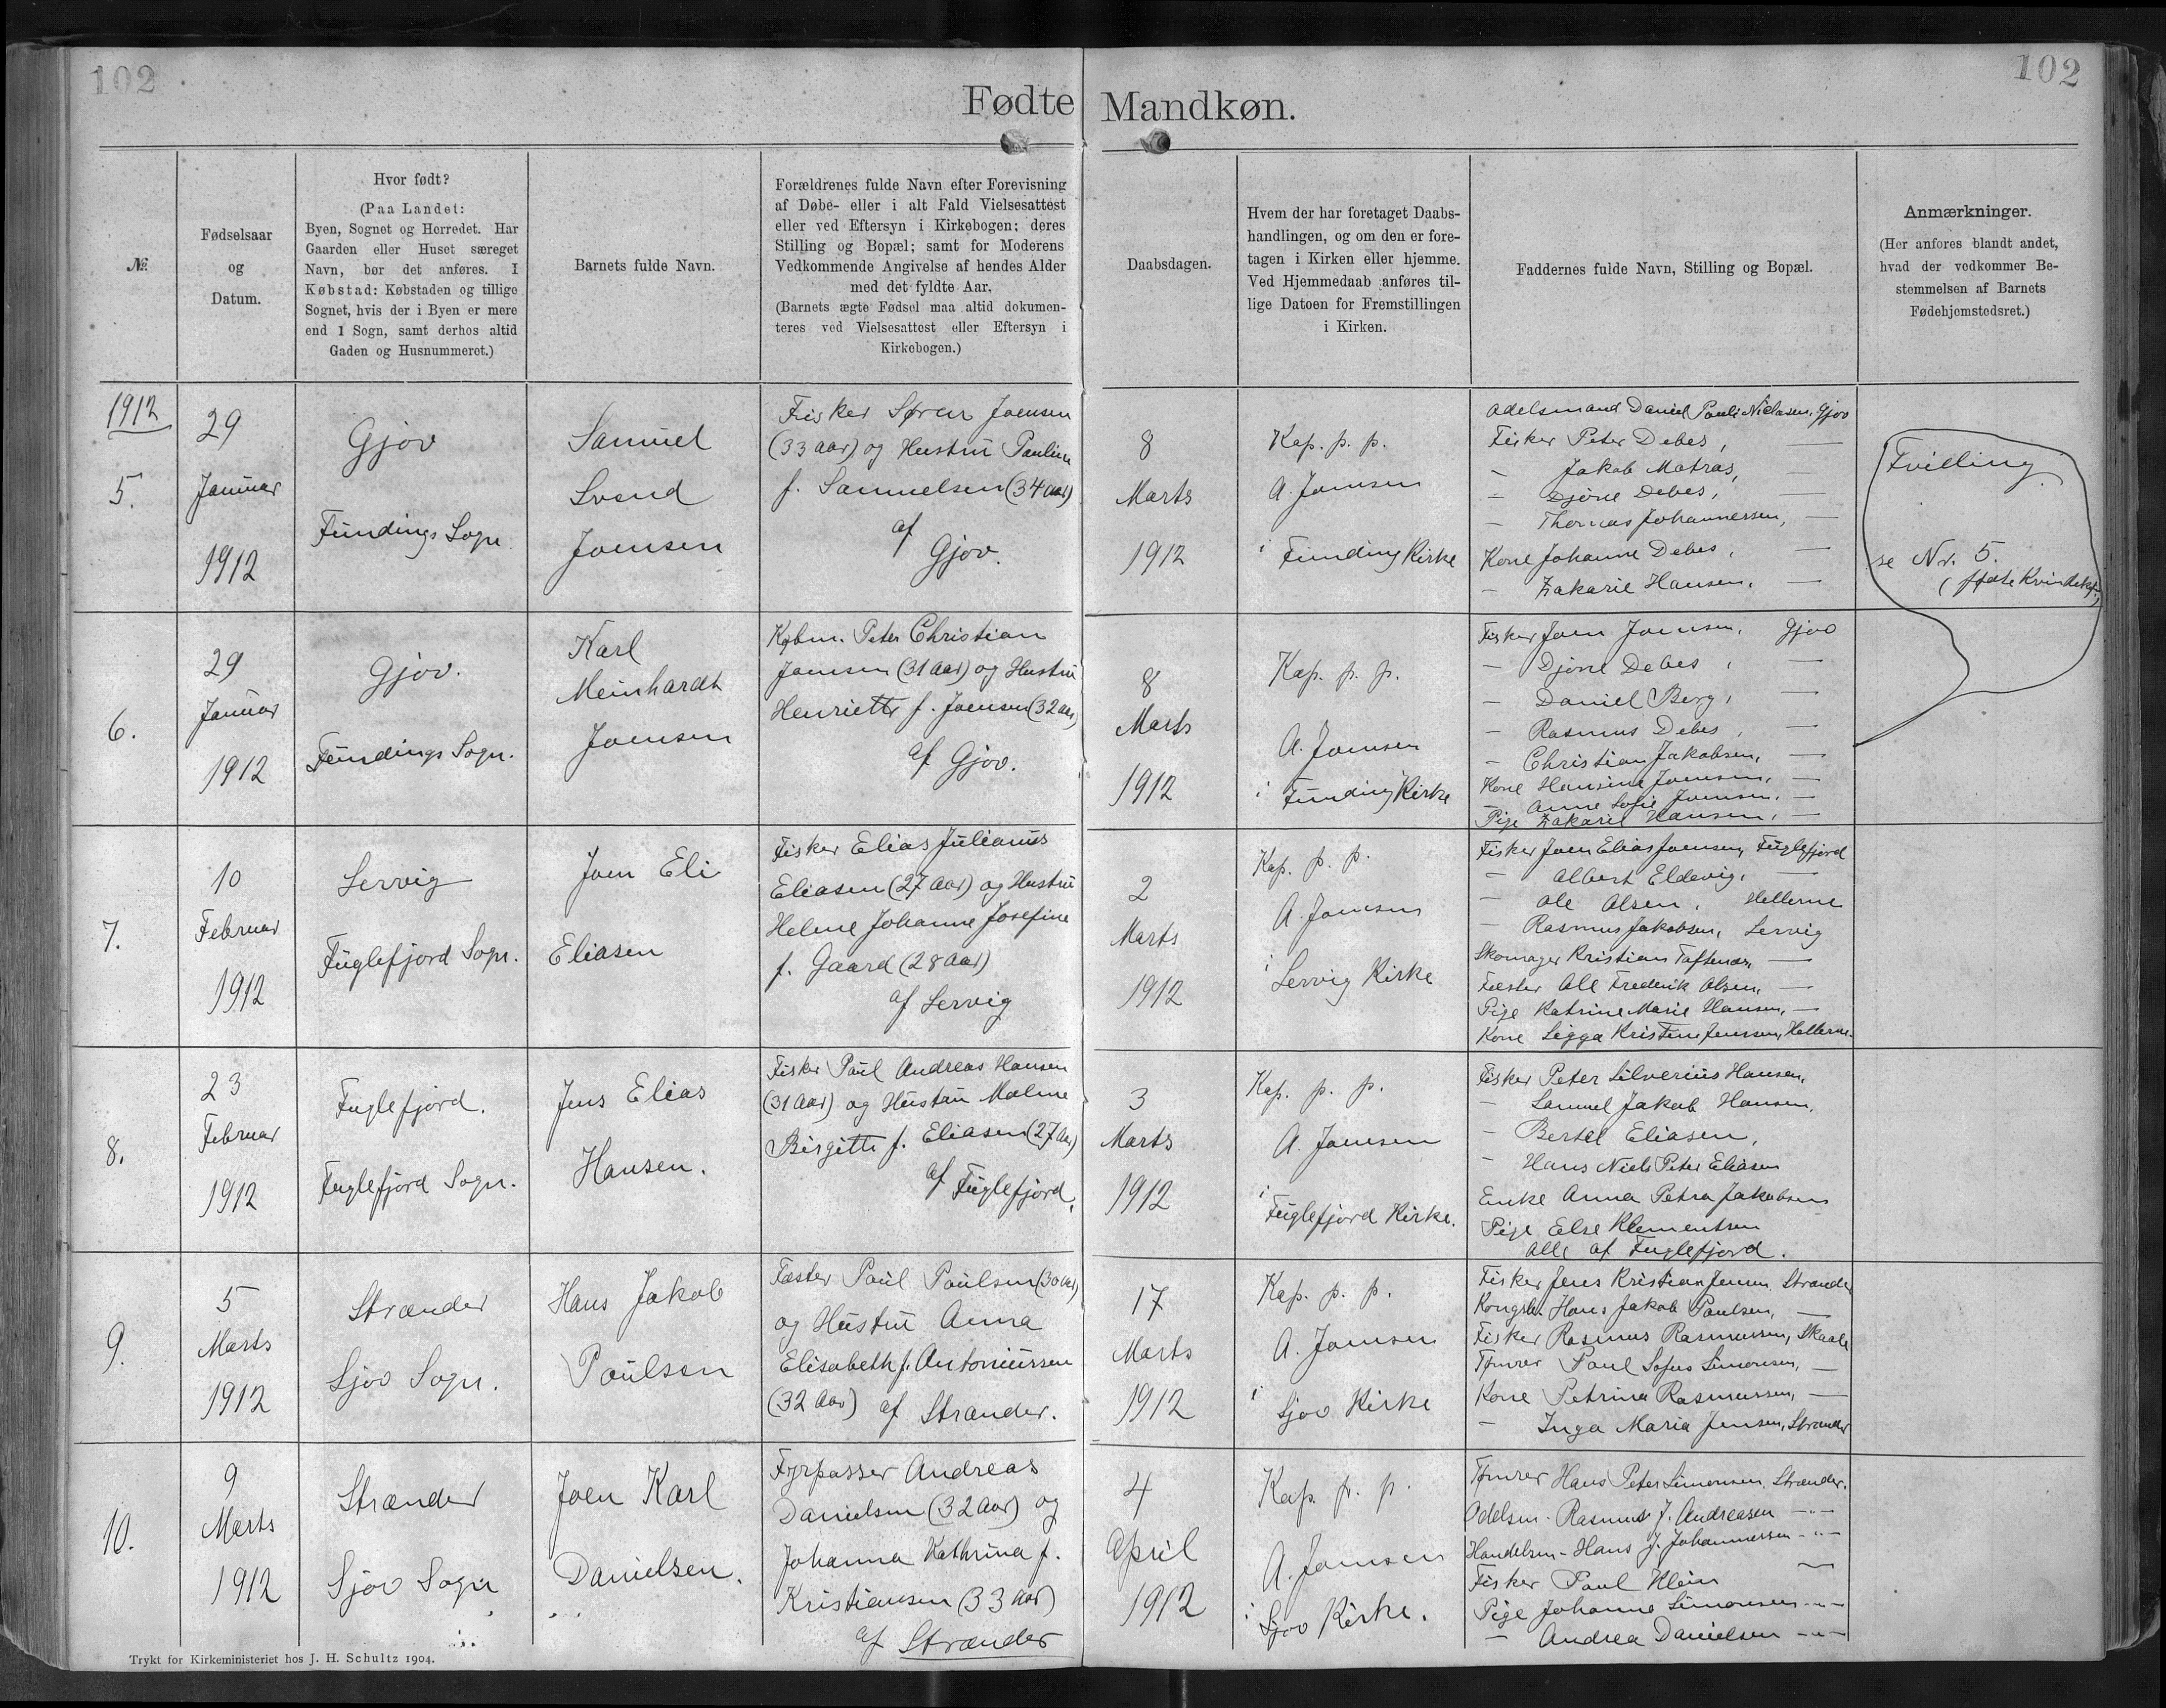 102
102
Fødte Mandkøn.
№
Fødselsaar
og
Datum.
Hvor født?
(Paa Landet:
Byen, Sognet og Herredet. Har
Gaarden eller Huset særeget
Navn, bør det anføres. I
Købstad: Købstaden og tillige
Sognet, hvis der i Byen er mere
end 1 Sogn, samt derhos altid
Gaden og Husnummeret.)
Barnets fulde Navn.
Forældrenes fulde Navn efter Forevisning
af Døbe- eller i alt Fald Vielsesattest
eller ved Eftersyn i Kirkebogen; deres
Stilling og Bopæl; samt for Moderens
Vedkommende Angivelse af hendes Alder
med det fyldte Aar.
(Barnets ægte Fødsel maa altid dokumen-
teres ved Vielsesattest eller Eftersyn i
Kirkebogen.)
Daabsdagen.
Hvem der har foretaget Daabs-
handlingen, og om den er fore-
tagen i Kirken eller hjemme.
Ved Hjemmedaab anføres til-
lige Datoen for Fremstillingen
i Kirken.
Faddernes fulde Navn, Stilling og Bopæl.
Anmærkninger.
(Her anføres blandt andet,
hvad der vedkommer Be-
stemmelsen af Barnets
Fødehjemstedsret.)
1912
5.
29
Januar
1912
Gjov
Fundings Sogn
Samuel
Svend
Joensen
Fisker Søren Joensen
(33 aar) og Hustru Pauline
f. Samuelsen (34 aar)
af
Gjov.
8
Marts
1912
Kap. p. p.
A. Joensen
i Funding Kirke
Odelsmand Daniel Pauli Niclasen, Gjov
Fisker Peter Debes, —
- Jakob Matras, —
- Djóne Debes, —
- Thomas Johannessen, —
Kone Johanne Debes, —
- Zakarie Hansen, —
Tvilling
se Nr. 5.
(fødte Kvindekøn)
6.
29
Januar
1912
Gjov.
Fundings Sogn.
Karl
Meinhardt
Joensen
Købm. Peter Christian
Joensen (31 Aar) og Hustru
Henriette f. Joensen (32 aar)
af Gjov.
8
Marts
1912
Kap. p. p.
A. Joensen
i Funding Kirke
Fisker Joen Joensen, Gjov
- Djóne Debes, —
- Daniel Berg, —
- Rasmus Debes, —
- Christian Jakobsen, —
Kone Hansine Joensen, —
- Anne Sofie Joensen, —
Pige Zakarie Hansen, —
7.
10
Februar
1912
Lervig
Fuglefjord Sogn.
Joen Eli
Eliasen
Fisker Elias Julianus
Eliasen (27 Aar) og Hustru
Helene Johanne Josefine
f. Gaard (28 Aar)
af Lervig
2
Marts
1912
Kap. p. p.
A. Joensen
i Lervig Kirke
Fisker Joen Elias Joensen, Fuglefjord
- Albert Eldevig, —
- Ole Olsen, Hellerne
- Rasmus Jakobsen, Lervig
Skomager Kristian Toftenæs, —
Fæster Ole Frederik Olsen, —
Pige Katrine Marie Hansen, —
Kone Sigga Kristine Joensen, Hellerne.
8.
23
Februar
1912
Fuglefjord.
Fuglefjord Sogn.
Jens Elias
Hansen.
Fisker Paul Andreas Hansen
(31 Aar) og Hustru Malene
Birgitte f. Eliasen (27 Aar)
af Fuglefjord.
3
Marts
1912
Kap. p. p.
A. Joensen
i Fuglefjord Kirke.
Fisker Peter Silverius Hansen,
- Samuel Jakob Hansen,
- Bertel Eliasen,
- Hans Niels Peter Eliasen
Enke Anna Petra Jakobsen
Pige Else Klementsen
alle af Fuglefjord.
9.
5
Marts
1912
Strænder
Sjov Sogn.
Hans Jakob
Poulsen
Fæster Poul Poulsen (30 aar)
og Hustru Anna
Elisabeth f. Antoniussen
(32 Aar) af Strænder.
17
Marts
1912
Kap. p. p.
A. Joensen
i Sjov Kirke
Fisker Jens Kristian Jensen, Strænder
Kongsb. Hans Jakob Poulsen, —
Fisker Rasmus Rasmussen, Skaale
Tømrer Poul Sofus Simonsen, —
Kone Petrina Rasmussen, —
- Inga Maria Jensen, Strænder
10.
9
Marts
1912
Strænder
Sjov Sogn
Joen Karl
Danielsen.
Fyrpasser Andreas
Danielsen (32 Aar) og
Johanna Kathrina f.
Kristiansen (33 Aar)
af Strænder
4
April
1912
Kap. p. p.
A. Joensen
i Sjov Kirke.
Tømrer Hans Peter Simonsen, Strænder.
Odelsm. Rasmus J. Andreasen —"—
Handelsm. Hans J. Johannessen —"—
Fisker Poul Klein —
Pige Johanne Simonsen —"—
- Andrea Danielsen —"—
Trykt for Kirkeministeriet hos J. H. Schultz 1904.